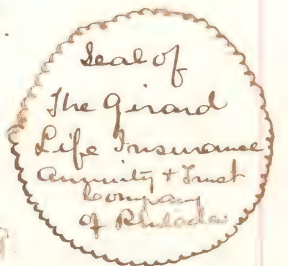 Seal of
The Girard
Life Insurance
Annuity & Trust
Company
of Philada